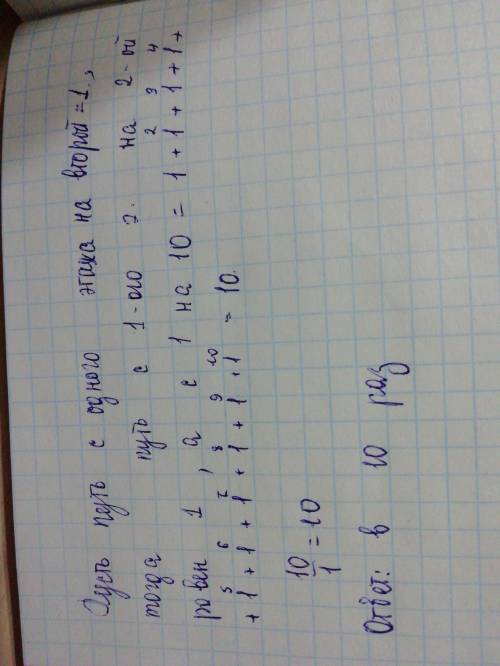 Пусть путь с одного этажа на второй = 1.,
тогда путь с 1-ого э. на 2-ой
равен 1, а с 1 на 10 = 1 + 1 + 1 + 1 +
2 3 4
+ 1 + 1 + 1 + 1 + 1 + 1 = 10.
5 6 7 8 9 10
10/1 = 10
Ответ: в 10 раз